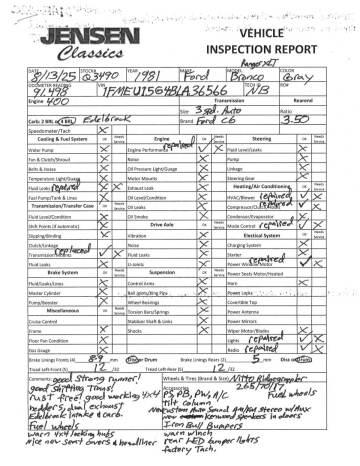 JENSEN
Classics
VEHICLE
INSPECTION REPORT
Ranger XLT
DATE 8/13/25
STOCK# Q3490
YEAR 1981
MAKE Ford
MODEL Bronco
COLOR Gray
ODOMETER READING 91,498
VIN 1FMEU15G4BLA36566
TECH NB
RO#
Engine 400
Transmission
Rearend
Size 3 spd. Auto
Ratio
Carb: 2 BRL 4 BRL Edelbrock
Brand Ford C6
3.50
Speedometer/Tach
Cooling & Fuel System OK Needs Service
Engine OK Needs Service
Steering OK Needs Service
Water Pump
Engine Performance repaired
Fluid Level/Leaks
Fan & Clutch/Shroud
Noise
Pump
Belts & Hoses
Oil Pressure Light/Gauge
Linkage
Temperature Light/Gauge
Motor Mounts
Steering Gear
Fluid Leaks repaired
Exhaust Leak
Heating/Air Conditioning OK Needs Service
Fuel Pump/Tank & Lines
Oil Level/Condition
HVAC/Blower repaired
Transmission/Transfer Case OK Needs Service
Oil Leaks
Compressor/Clutch repaired
Fluid Level/Condition
Oil Smoke
Condenser/Evaporator
Shift Points (if automatic)
Drive Axle OK Needs Service
Mode Control repaired
Slipping/Binding
Vibration
Electrical System OK Needs Service
Clutch/Linkage
Noise
Charging System
Transmission Mounts replaced
Fluid Level
Starter
Fluid Leaks
U-Joints
Power Window Motor repaired
Brake System OK Needs Service
Suspension OK Needs Service
Power Seats Motor/Heated
Fluid/Leaks/Lines
Control Arms
Horn
Master Cylinder
Ball Joints/King Pins
Power Locks
Pump/Booster
Wheel Bearings
Convertible Top
Miscellaneous OK Needs Service
Torsion Bars/Springs
Power Antenna
Cruise Control
Stabilizer Shaft & Links
Power Mirrors
Frame
Shocks
Wiper Motor/Blades
Floor Pan Condition
Lights repaired
Gas Gauge
Radio repaired
Brake Linings Fronts (F) 8-9 mm Disc or Drum
Brake Linings Rears (R) 5 mm Disc or Drum
Tread Left-Front (F) 12 /32
Tread Left-Rear (R) 12 /32
Comments: good strong runner!
good shifting trans!
rust free! good working 4x4
headers, dual exhaust
Edelbrock intake & carb.
Fuel wheels
warn 4x4 locking hubs
Nice new seat covers & headliner
Wheels & Tires (Brand & Size) Nitto Ridgegrappler
265/70/17 Fuel wheels
Accessories
PS, PB, PW, A/C
tilt column
Custom Auto Sound AM/FM stereo w/Aux
new Kenwood speakers in doors
Iron Bull Bumpers
warn winch
rear LED bumper lights
factory Tach.